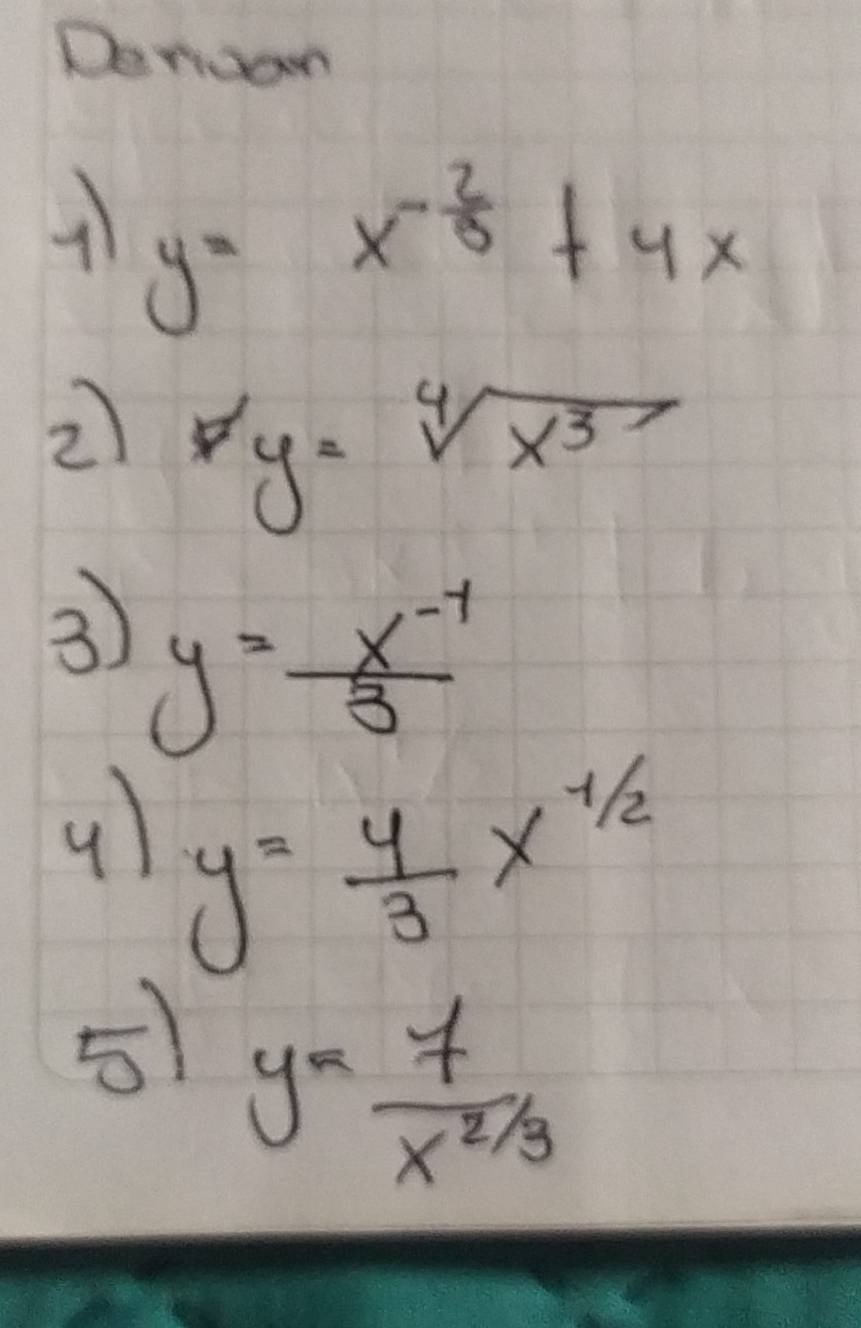 Derivar
1) y = x^{-2/3} + 4x
2) y = \sqrt[4]{x^3}
3) y = \frac{x^{-1}}{3}
4) y = \frac{4}{3} x^{1/2}
5) y = \frac{7}{x^{2/3}}